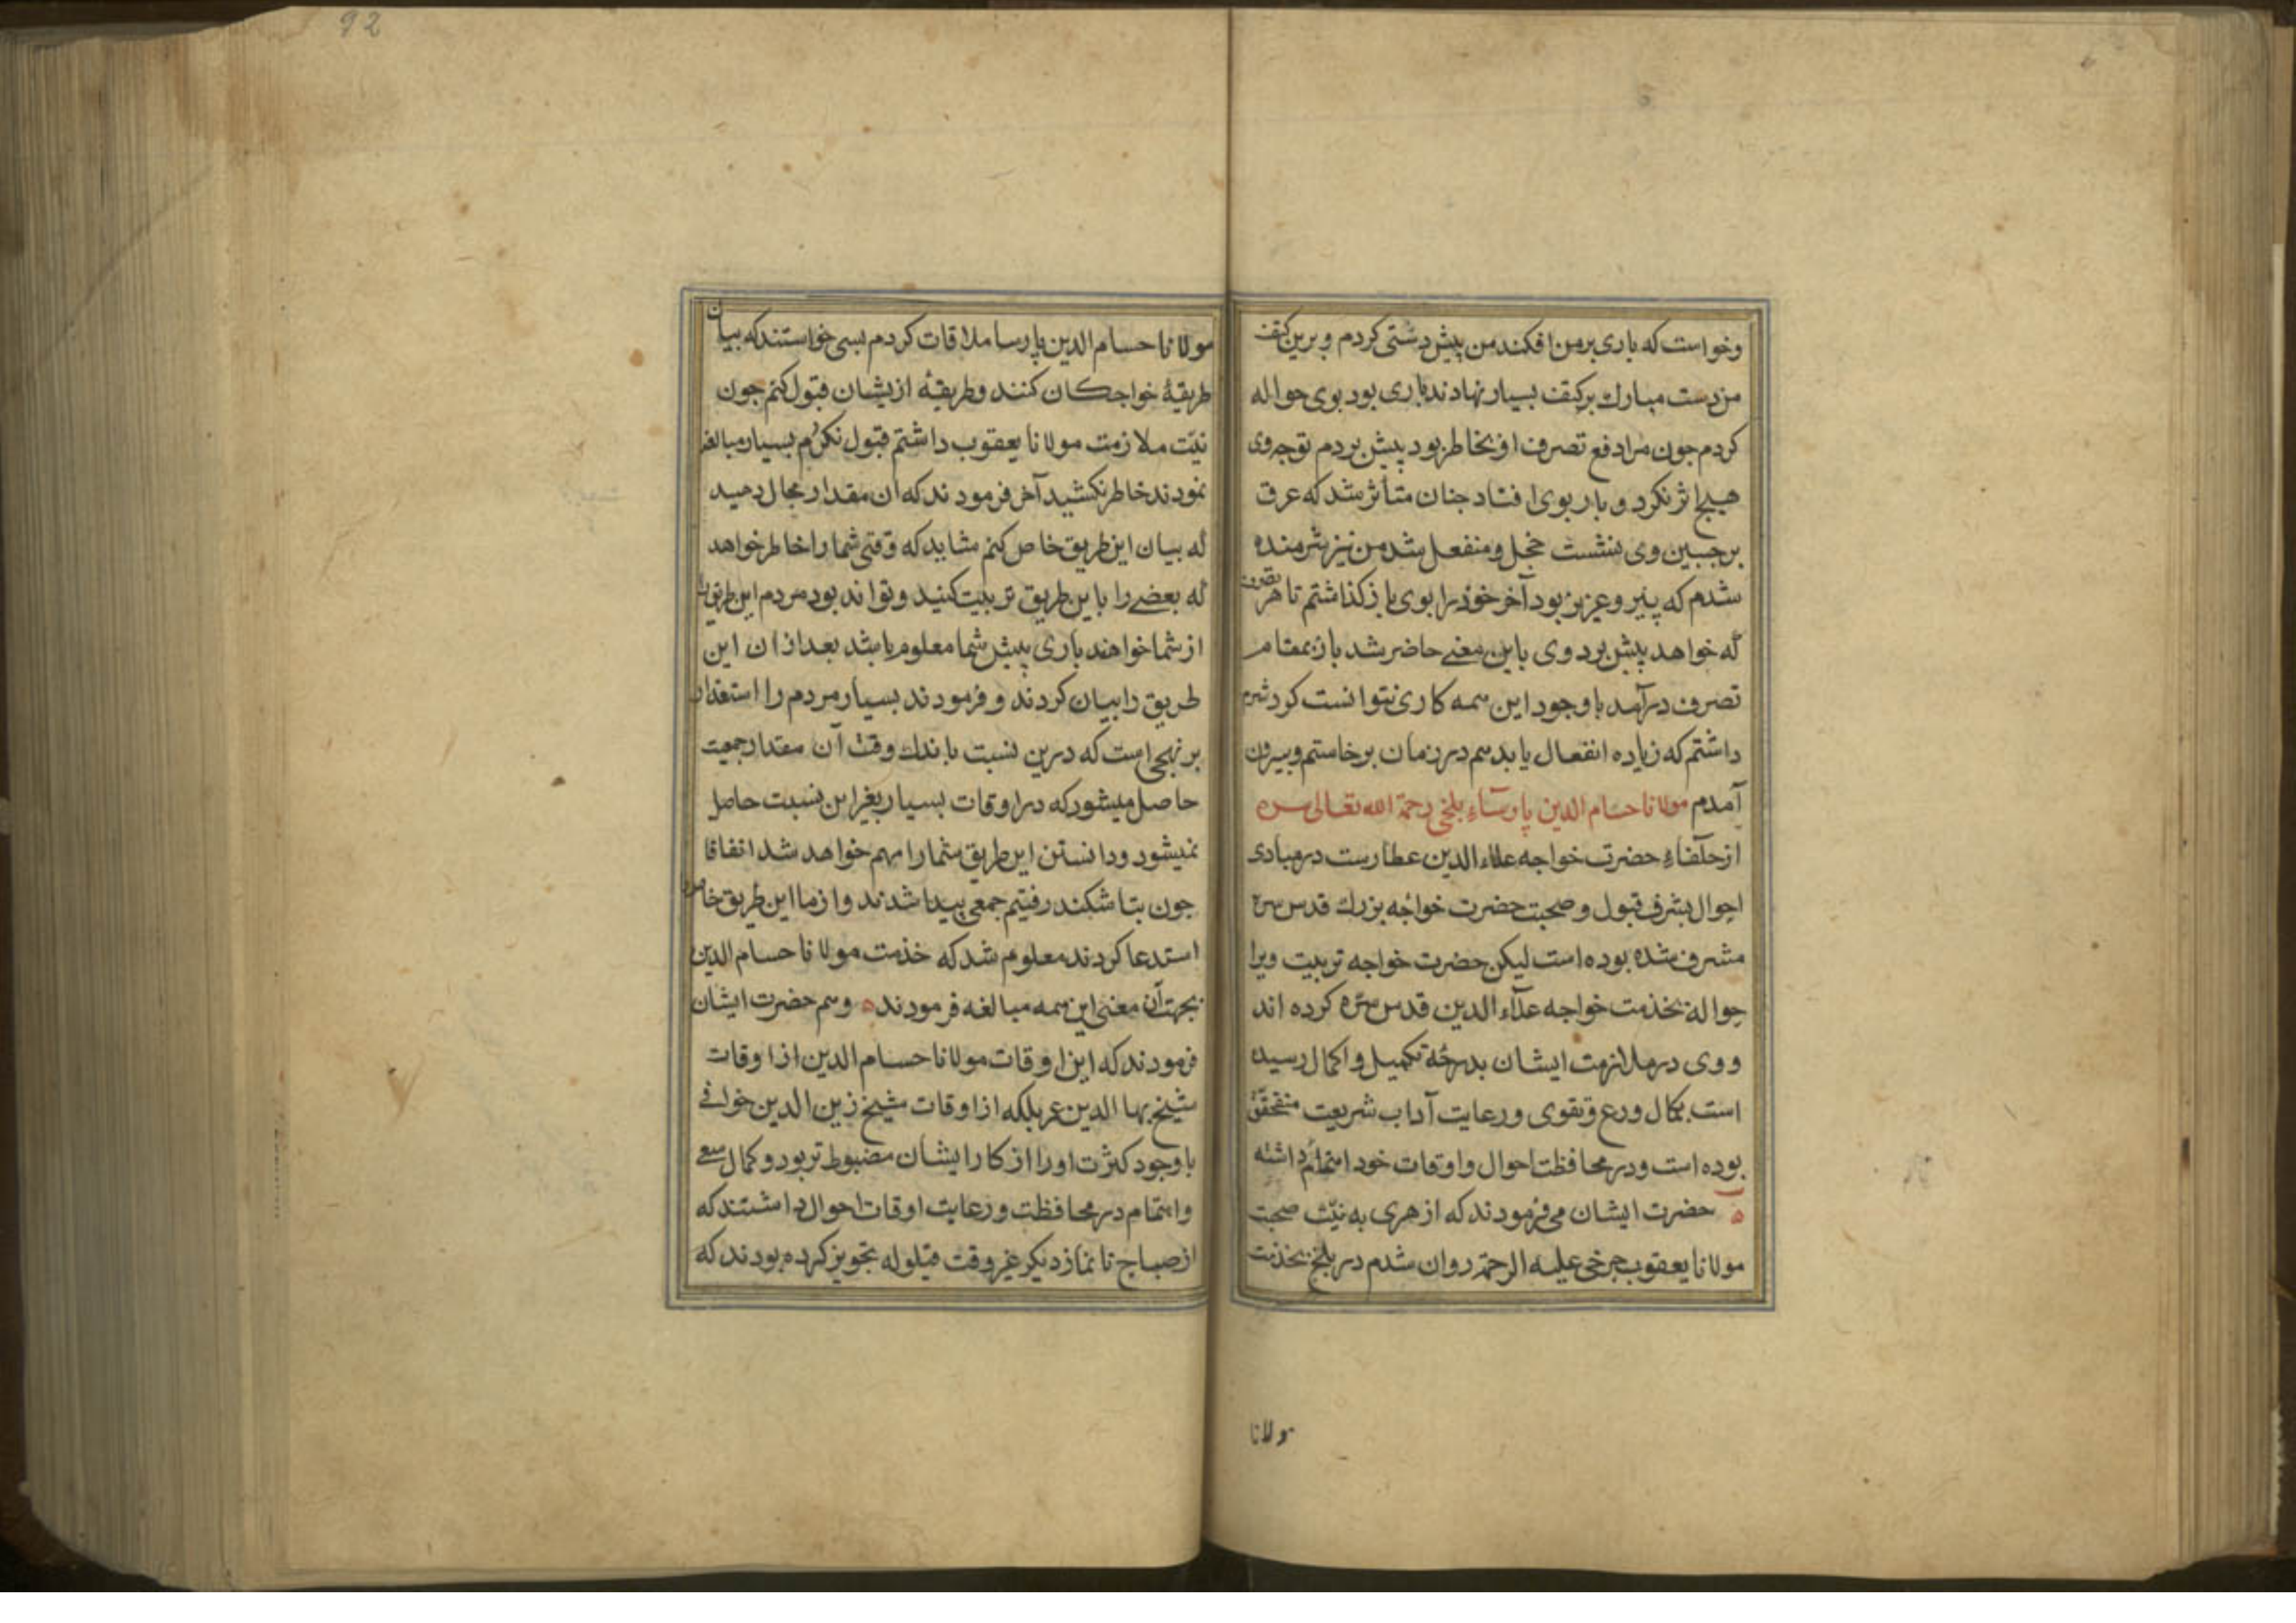 وخواست که باری بر من افکند من پیش دستی کردم و برین کتف
من دست مبارك بر کتف بسیار نهادند باری بود بوی حواله
کردم جون مرا دفع تصرف او بخاطر بود پیش بردم توجه وی
هیچ اثر نکرد و بار بوی افتاد جنان متأثر شد که عرق
بر جبین وی بنشست خجل و منفعل شد من نیز شرمنده
شدم که پیر و عزیز بود آخر خود را بوی باز کذاشتم تا هر تصرف
که خواهد پیش برد وی باین معنی حاضر شد باز بمقام
تصرف درآمد با وجود این همه کاری نتوانست کرد شرم
داشتم که زیاده انفعال یابد هم در زمان برخاستم و بیرون
آمدم مولانا حسام الدین پارساء بلخی رحمة الله تعالی سره
از خلفاء حضرت خواجه علاء الدین عطارست در مبادی
احوال بشرف قبول و صحبت حضرت خواجه بزرك قدس سره
مشرف شده بوده است لیکن حضرت خواجه تربیت ویرا
حواله بخذمت خواجه علاء الدین قدس سره کرده اند
و وی در ملازمت ایشان بدرجه تکمیل و اکمال رسیده
است بکمال ورع و تقوی و رعایت آداب شریعت متحقق
بوده است و در محافظت احوال و اوقات خود اهتمام داشته
ه حضرت ایشان می فرمودند که از هری به نیت صحبت
مولانا یعقوب جرخی علیه الرحمة روان شدم در بلخ بخذمت
ولانا
92
مولانا حسام الدین پارسا ملاقات کردم بسی خواستند که بیان
طریقۀ خواجکان کنند و طریقۀ ازیشان قبول کنم جون
نیّت ملازمت مولانا یعقوب داشتم قبول نکردم بسیار مبالغه
نمودند خاطر نکشید آخر فرمودند که آن مقدار مجال دهید
که بیان این طریق خاص کنم شاید که وقتی شما را خاطر خواهد
که بعضی را باین طریق تربیت کنید و تواند بود مردم این طریق را
از شما خواهند باری پیش شما معلوم باشد بعد ازان این
طریق را بیان کردند و فرمودند بسیار مردم را استعداد
بر نهجی است که درین نسبت باندك وقت آن مقدار جمعیت
حاصل میشود که در اوقات بسیار بغیر این نسبت حاصل
نمیشود و دانستن این طریق شما را مهم خواهد شد اتفاقا
جون بتاشکند رفتیم جمعی پیدا شدند و از ما این طریق خاص
استدعا کردند معلوم شد که خذمت مولانا حسام الدین
بجهت آن معنی این همه مبالغه فرمودند ه و هم حضرت ایشان
فرمودند که این اوقات مولانا حسام الدین از اوقات
شیخ بها الدین عمر بلکه از اوقات شیخ زین الدین خوافی
با وجود کثرت اوراز کار ایشان مضبوط تر بود و کمال سعی
و اهتمام در محافظت و رعایت اوقات احوال داشتند که
از صباح تا نماز دیکر غیر وقت قیلوله تجویز کرده بودند که